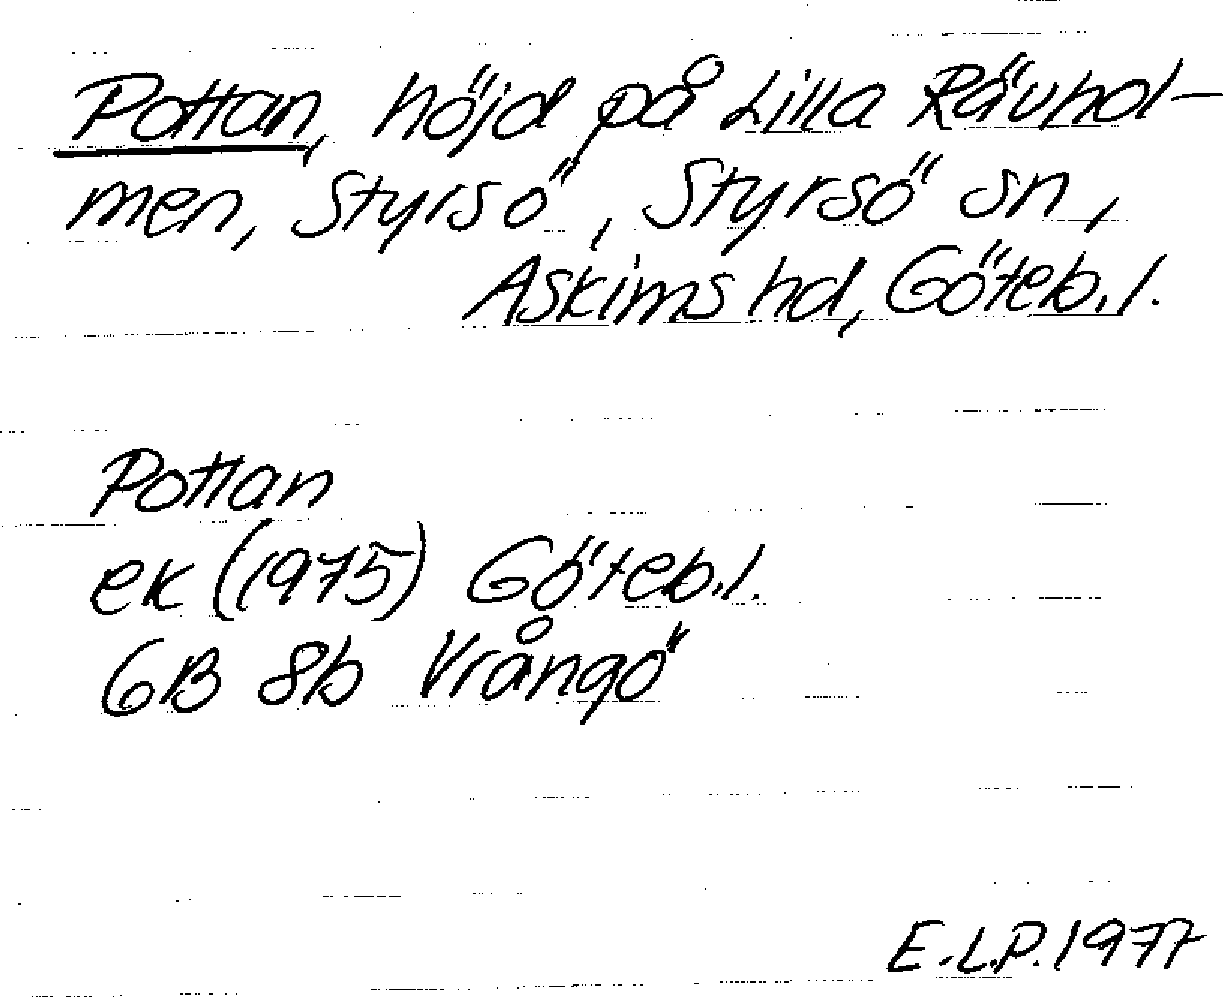 Pottan, höjd på Lilla Rävhol-
men, Styrsö, Styrsö sn,
Askims hd, Göteb.l.
Pottan
ek (1975) Göteb.l.
6B 8b Vrångö
E.L.P. 1977